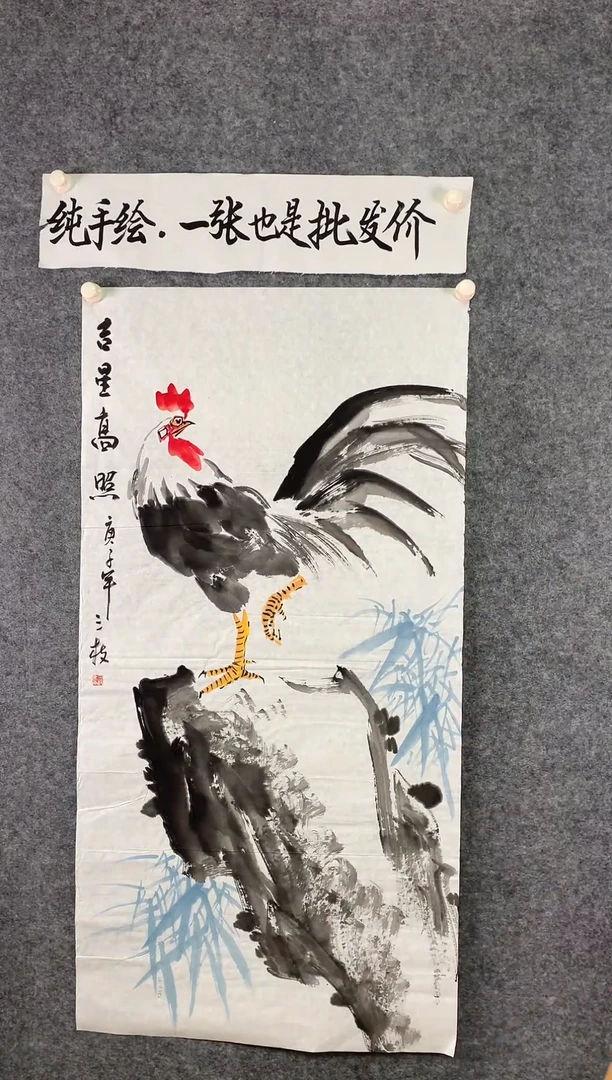 纯手绘.一张也是批发价
吉星高照
庚子年
三枝